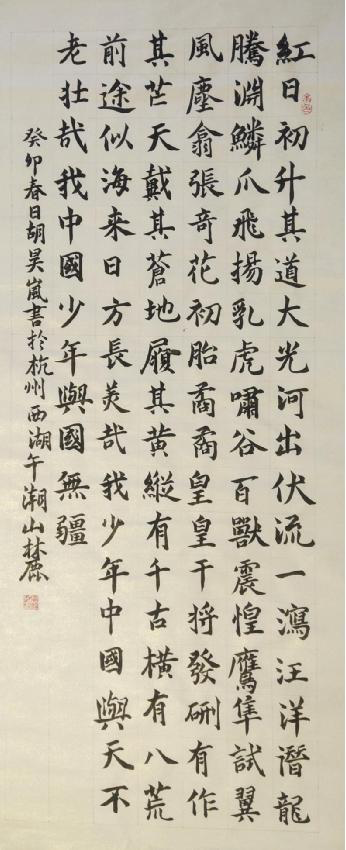 紅日初升其道大光河出伏流一瀉汪洋潛龍
騰淵鱗爪飛揚乳虎嘯谷百獸震惶鷹隼試翼
風塵翕張竒花初胎矞矞皇皇干將發硎有作
其芒天戴其蒼地履其黃縱有千古橫有八荒
前途似海来日方長美哉我少年中國與天不
老壯哉我中國少年與國無疆
癸卯春日胡昊嵐書於杭州西湖午潮山林麓